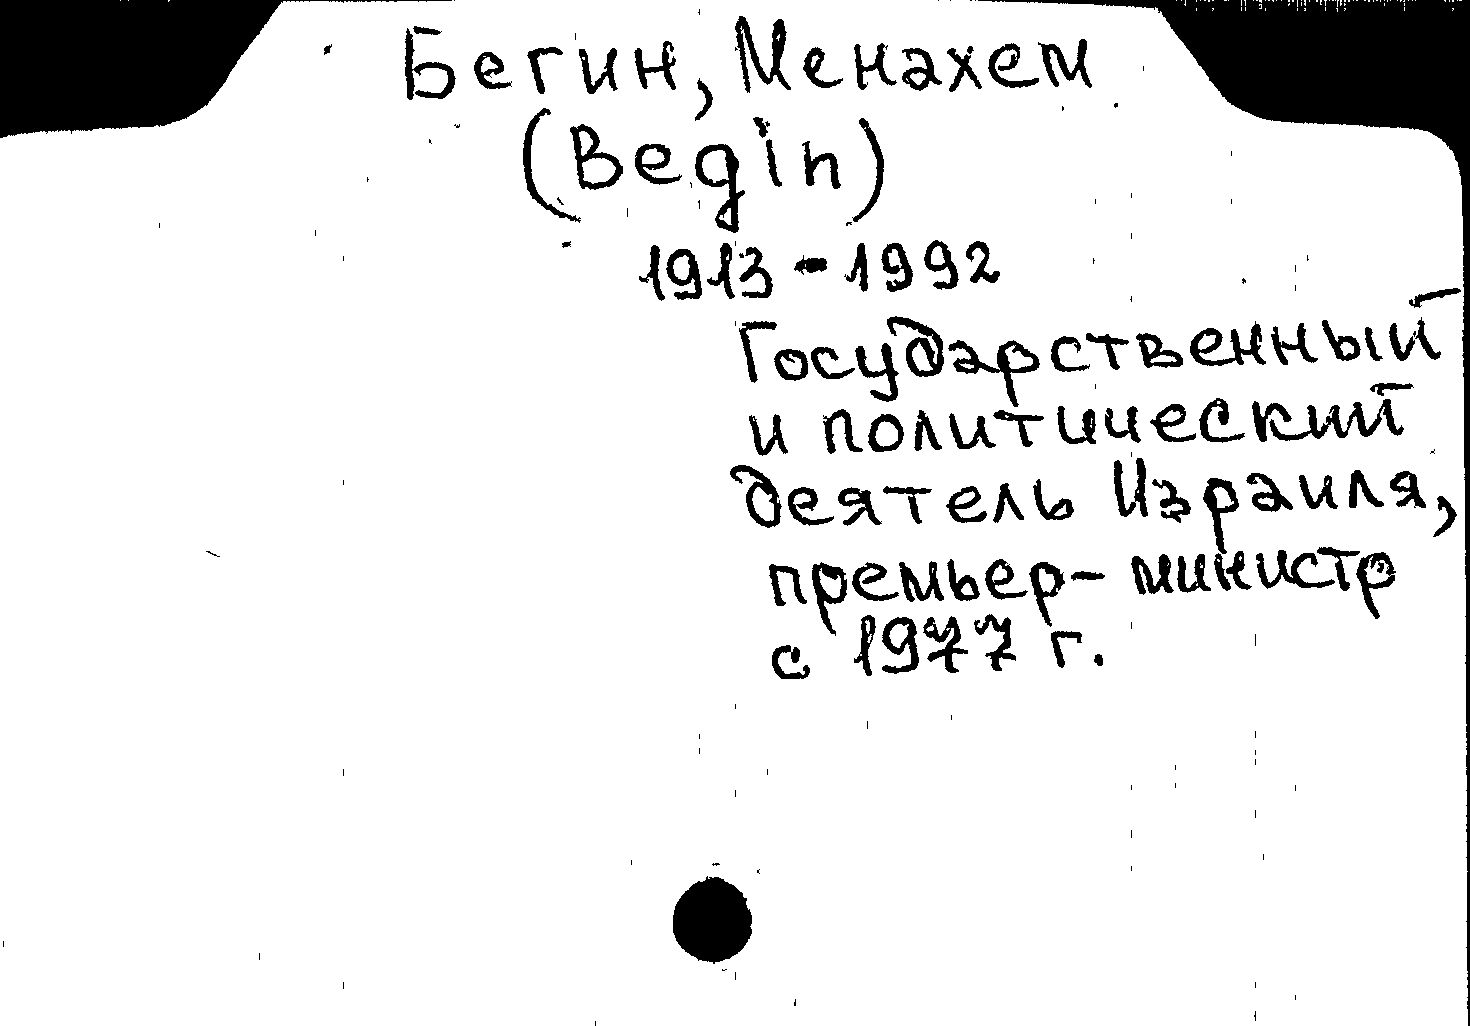 Бегин, Менахем
(Begin)
1913-1992
Государственный
и политический
деятель Израиля,
премьер-министр
с 1977 г.